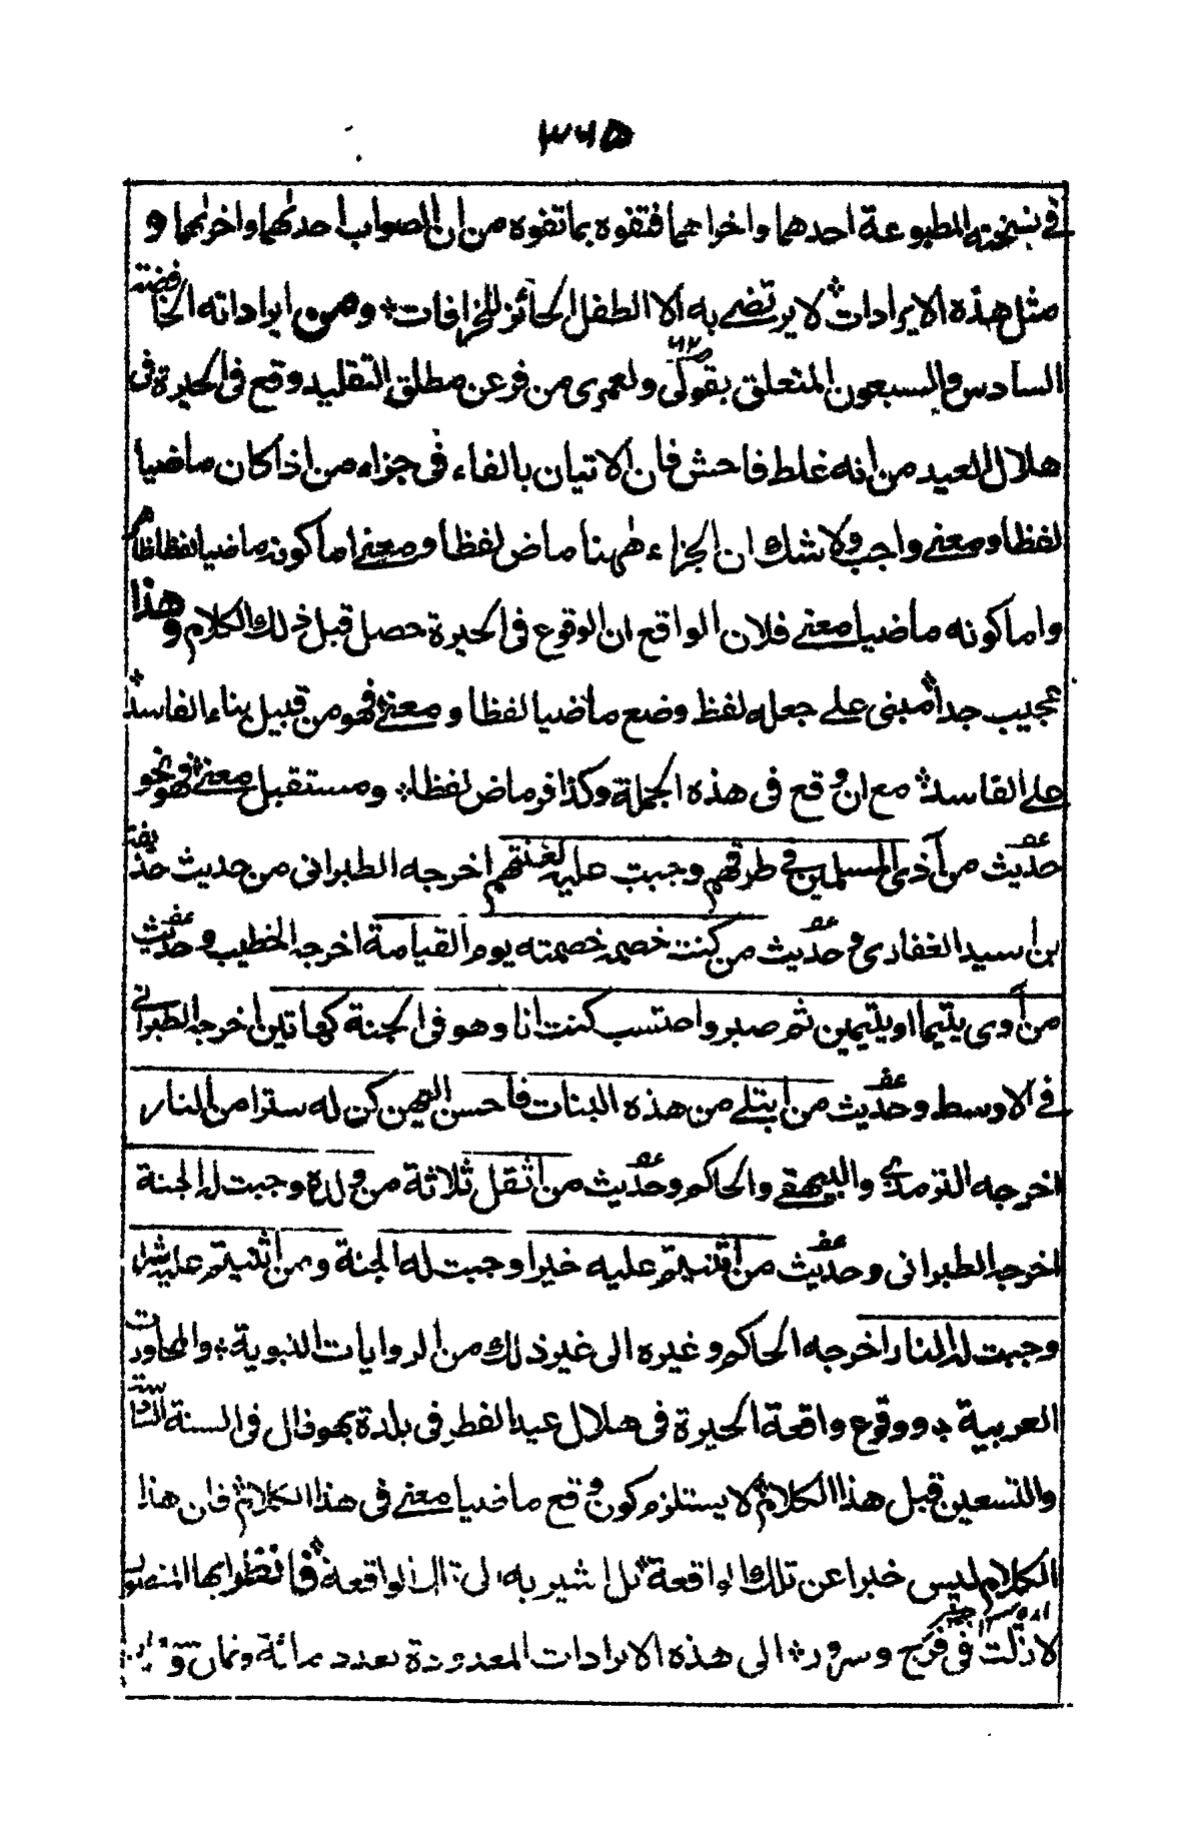 ٣٦٥
في نسخته المطبوعة احدهما واخراهما فتفوه بما تفوه من ان الصواب احدٰهما واخرٰهما و
مثل هذه الايرادات لا يرتضى به الا الطفل الحائز للخرافات ومن ايراداته الخافضة
السادس والسبعون المتعلق بقولى ص٦٢ ولعمرى من فر عن مطلق التقليد وقع فى الحيرة فى
هلال العيد من انه غلط فاحش فان الاتيان بالفاء فى جزاء من اذا كان ماضيا
لفظا ومعنى واجب ولا شك ان الجزاء ههنا ماض لفظا ومعنى اما كونه ماضيا لفظا ظاهر
واما كونه ماضيا معنى فلان الواقع ان الوقوع فى الحيرة حصل قبل ذلك الكلام وهذا
عجيب جدا مبنى على جعله لفظ وضع ماضيا لفظا ومعنى فهو من قبيل بناء الفاسد
على الفاسد مع ان وقع فى هذه الجملة وكذا فر ماض لفظا ومستقبل معنى فهو نحو
حديث من آذى المسلمين في طرقهم وجبت عليه لعنتهم اخرجه الطبرانى من حديث حذيفة
بن اسيد الغفارى وحديث من كنت خصمه خصمته يوم القيامة اخرجه الخطيب وحديث
من آوى يتيما او يتيمين ثم صبر واحتسب كنت انا وهو فى الجنة كهاتين اخرجه الطبرانى
في الاوسط وحديث من ابتلى من هذه البنات فاحسن اليهن كن له سترا من النار
اخرجه الترمذى والبيهقى والحاكم وحديث من اثقل ثلاثة من ولده وجبت له الجنة
اخرجه الطبرانى وحديث من اثنيتم عليه خيرا وجبت له الجنة ومن اثنيتم عليه شرا
وجبت له النار اخرجه الحاكم وغيره الى غير ذلك من الروايات النبوية والمحاورات
العربية ووقوع واقعة الحيرة فى هلال عيد الفطر فى بلدة بهوفال فى السنة السادسة
والتسعين قبل هذا الكلام لا يستلزم كون وقع ماضيا معنى فى هذا الكلام فان هذا
الكلام ليس خبرا عن تلك الواقعة بل اشير به الى تلك الواقعة فانظر ايها المنصور
لا زلت فى فرح وسرور الى هذه الايرادات المعدودة بعدد مائة وثمان